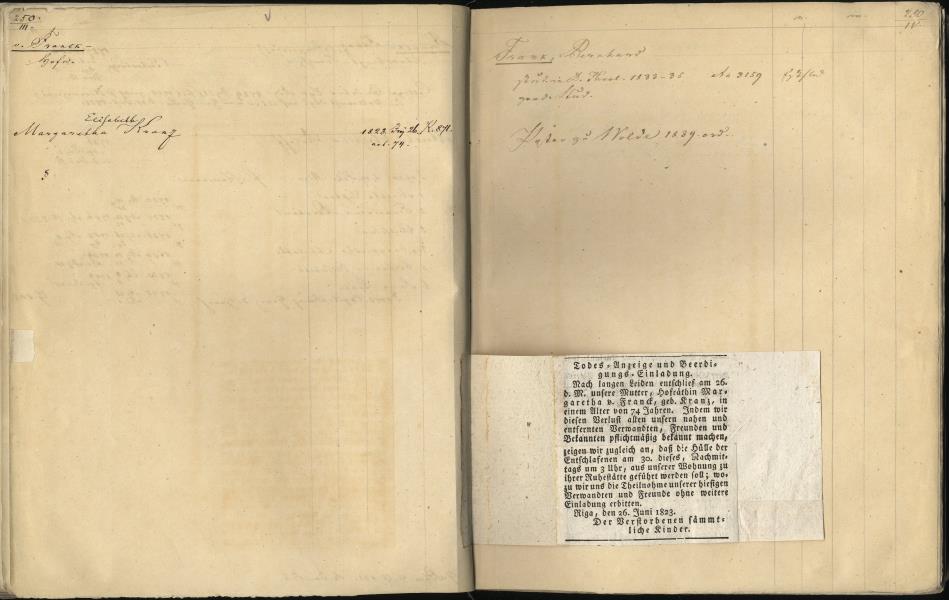 250
III.
v. Franck
Hofr.
Elisabeth
Margaretha Kranz
1823. Juni 26. K. 871.
aet. 74.
250
IV.
Frank, Bernhard
1833-35
Pastor zu Wolde 1839 ord.
Todes-Anzeige und Beerdi-
gungs-Einladung.
Nach langen Leiden entschlief am 26.
d. M. unsere Mutter, Hofräthin Mar-
garetha v. Franck, geb. Kranz, in
einem Alter von 74 Jahren. Indem wir
diesen Verlust allen unsern nahen und
entfernten Verwandten, Freunden und
Bekannten pflichtmäßig bekannt machen,
zeigen wir zugleich an, daß die Hülle der
Entschlafenen am 30. dieses, Nachmit-
tags um 3 Uhr, aus unserer Wohnung zu
ihrer Ruhestätte geführt werden soll; wo-
zu wir uns die Theilnahme unserer hiesigen
Verwandten und Freunde ohne weitere
Einladung erbitten.
Riga, den 26. Juni 1823.
Der Verstorbenen sämmt-
liche Kinder.